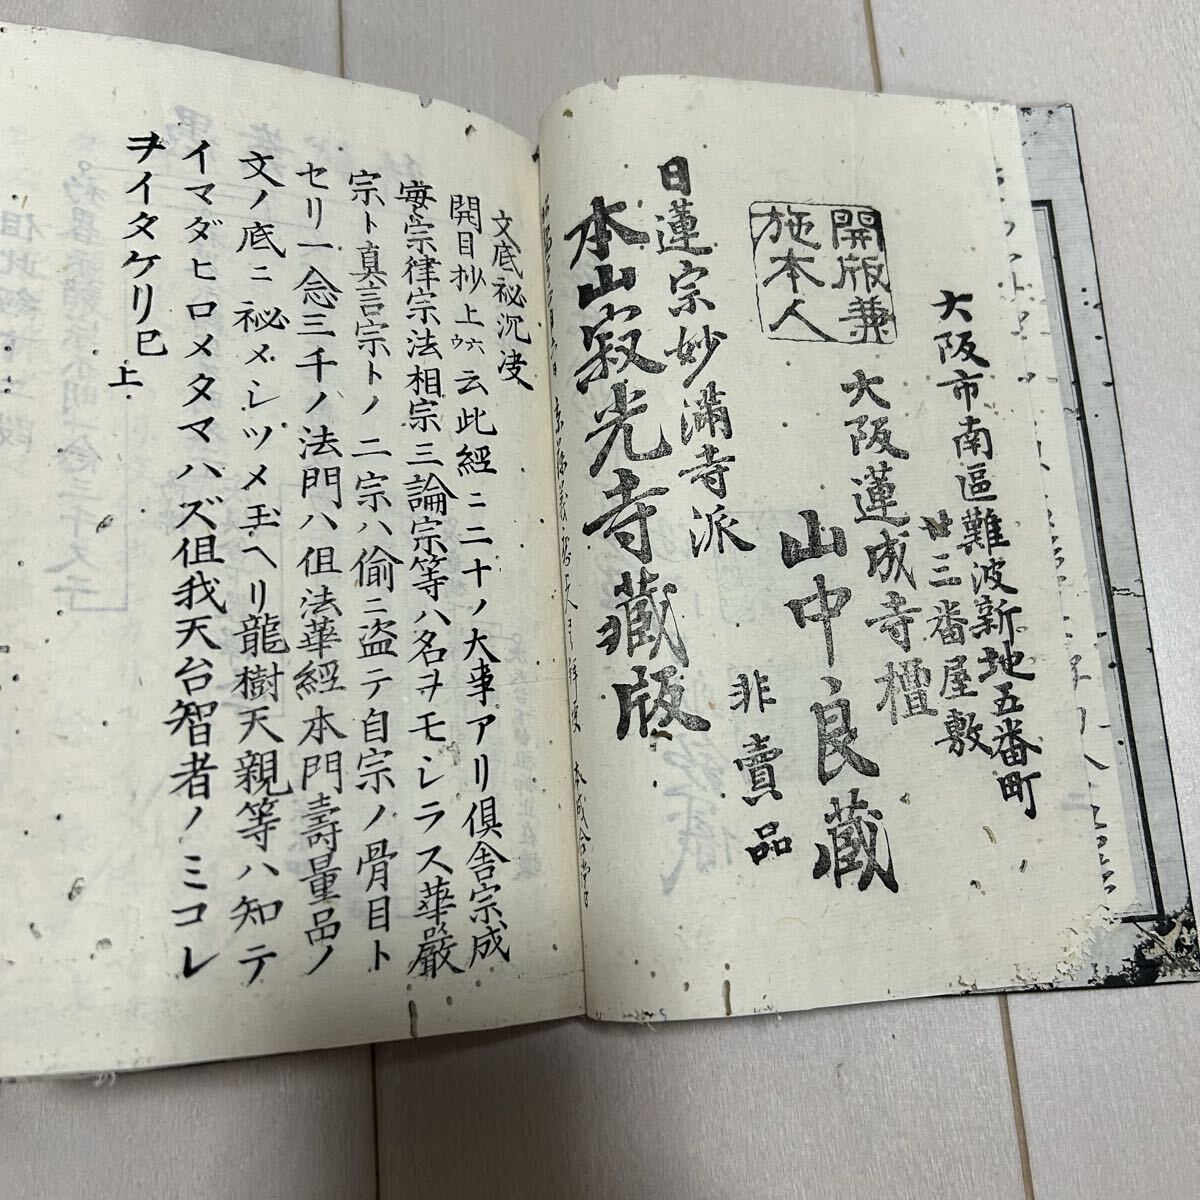 大阪市南區難波新地五番町
廿三番屋敷
大阪蓮成寺檀
山中良藏
開版兼
施本人
非賣品
日蓮宗妙滿寺派
本山寂光寺藏版
文底祕沉决
開目抄上六ウ云此經ニ二十ノ大事アリ倶舎宗成
実宗律宗法相宗三論宗等ハ名ヲモシラス華嚴
宗ト真言宗トノ二宗ハ偷ニ盗テ自宗ノ骨目ト
セリ一念三千ノ法門ハ但法華經本門壽量品ノ
文ノ底ニ祕メシツメ玉ヘリ龍樹天親等ハ知テ
イマダヒロメタマハズ但我天台智者ノミコレ
ヲイタケリ已上